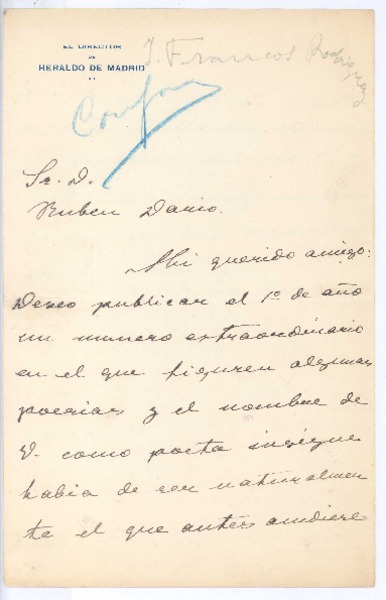 EL DIRECTOR
DE
HERALDO DE MADRID
J. Francos Rodriguez
Sr. D.
Ruben Dario.
Mi querido amigo:
Deseo publicar el 1º de año
un numero extraordinario
en el que figuren algunas
poesias y el nombre de
V. como poeta insigne
habia de ser naturalmen
te el que antes acudiere